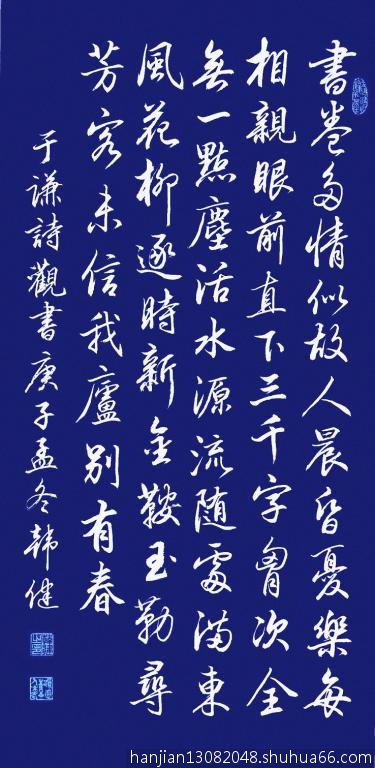 書卷多情似故人晨昏憂樂每
相親眼前直下三千字胷次全
無一點塵活水源流随處滿東
風花柳逐時新金鞍玉勒尋
芳客未信我廬別有春
于謙詩觀書庚子孟冬韓健
hanjian13082048.shuhua66.com